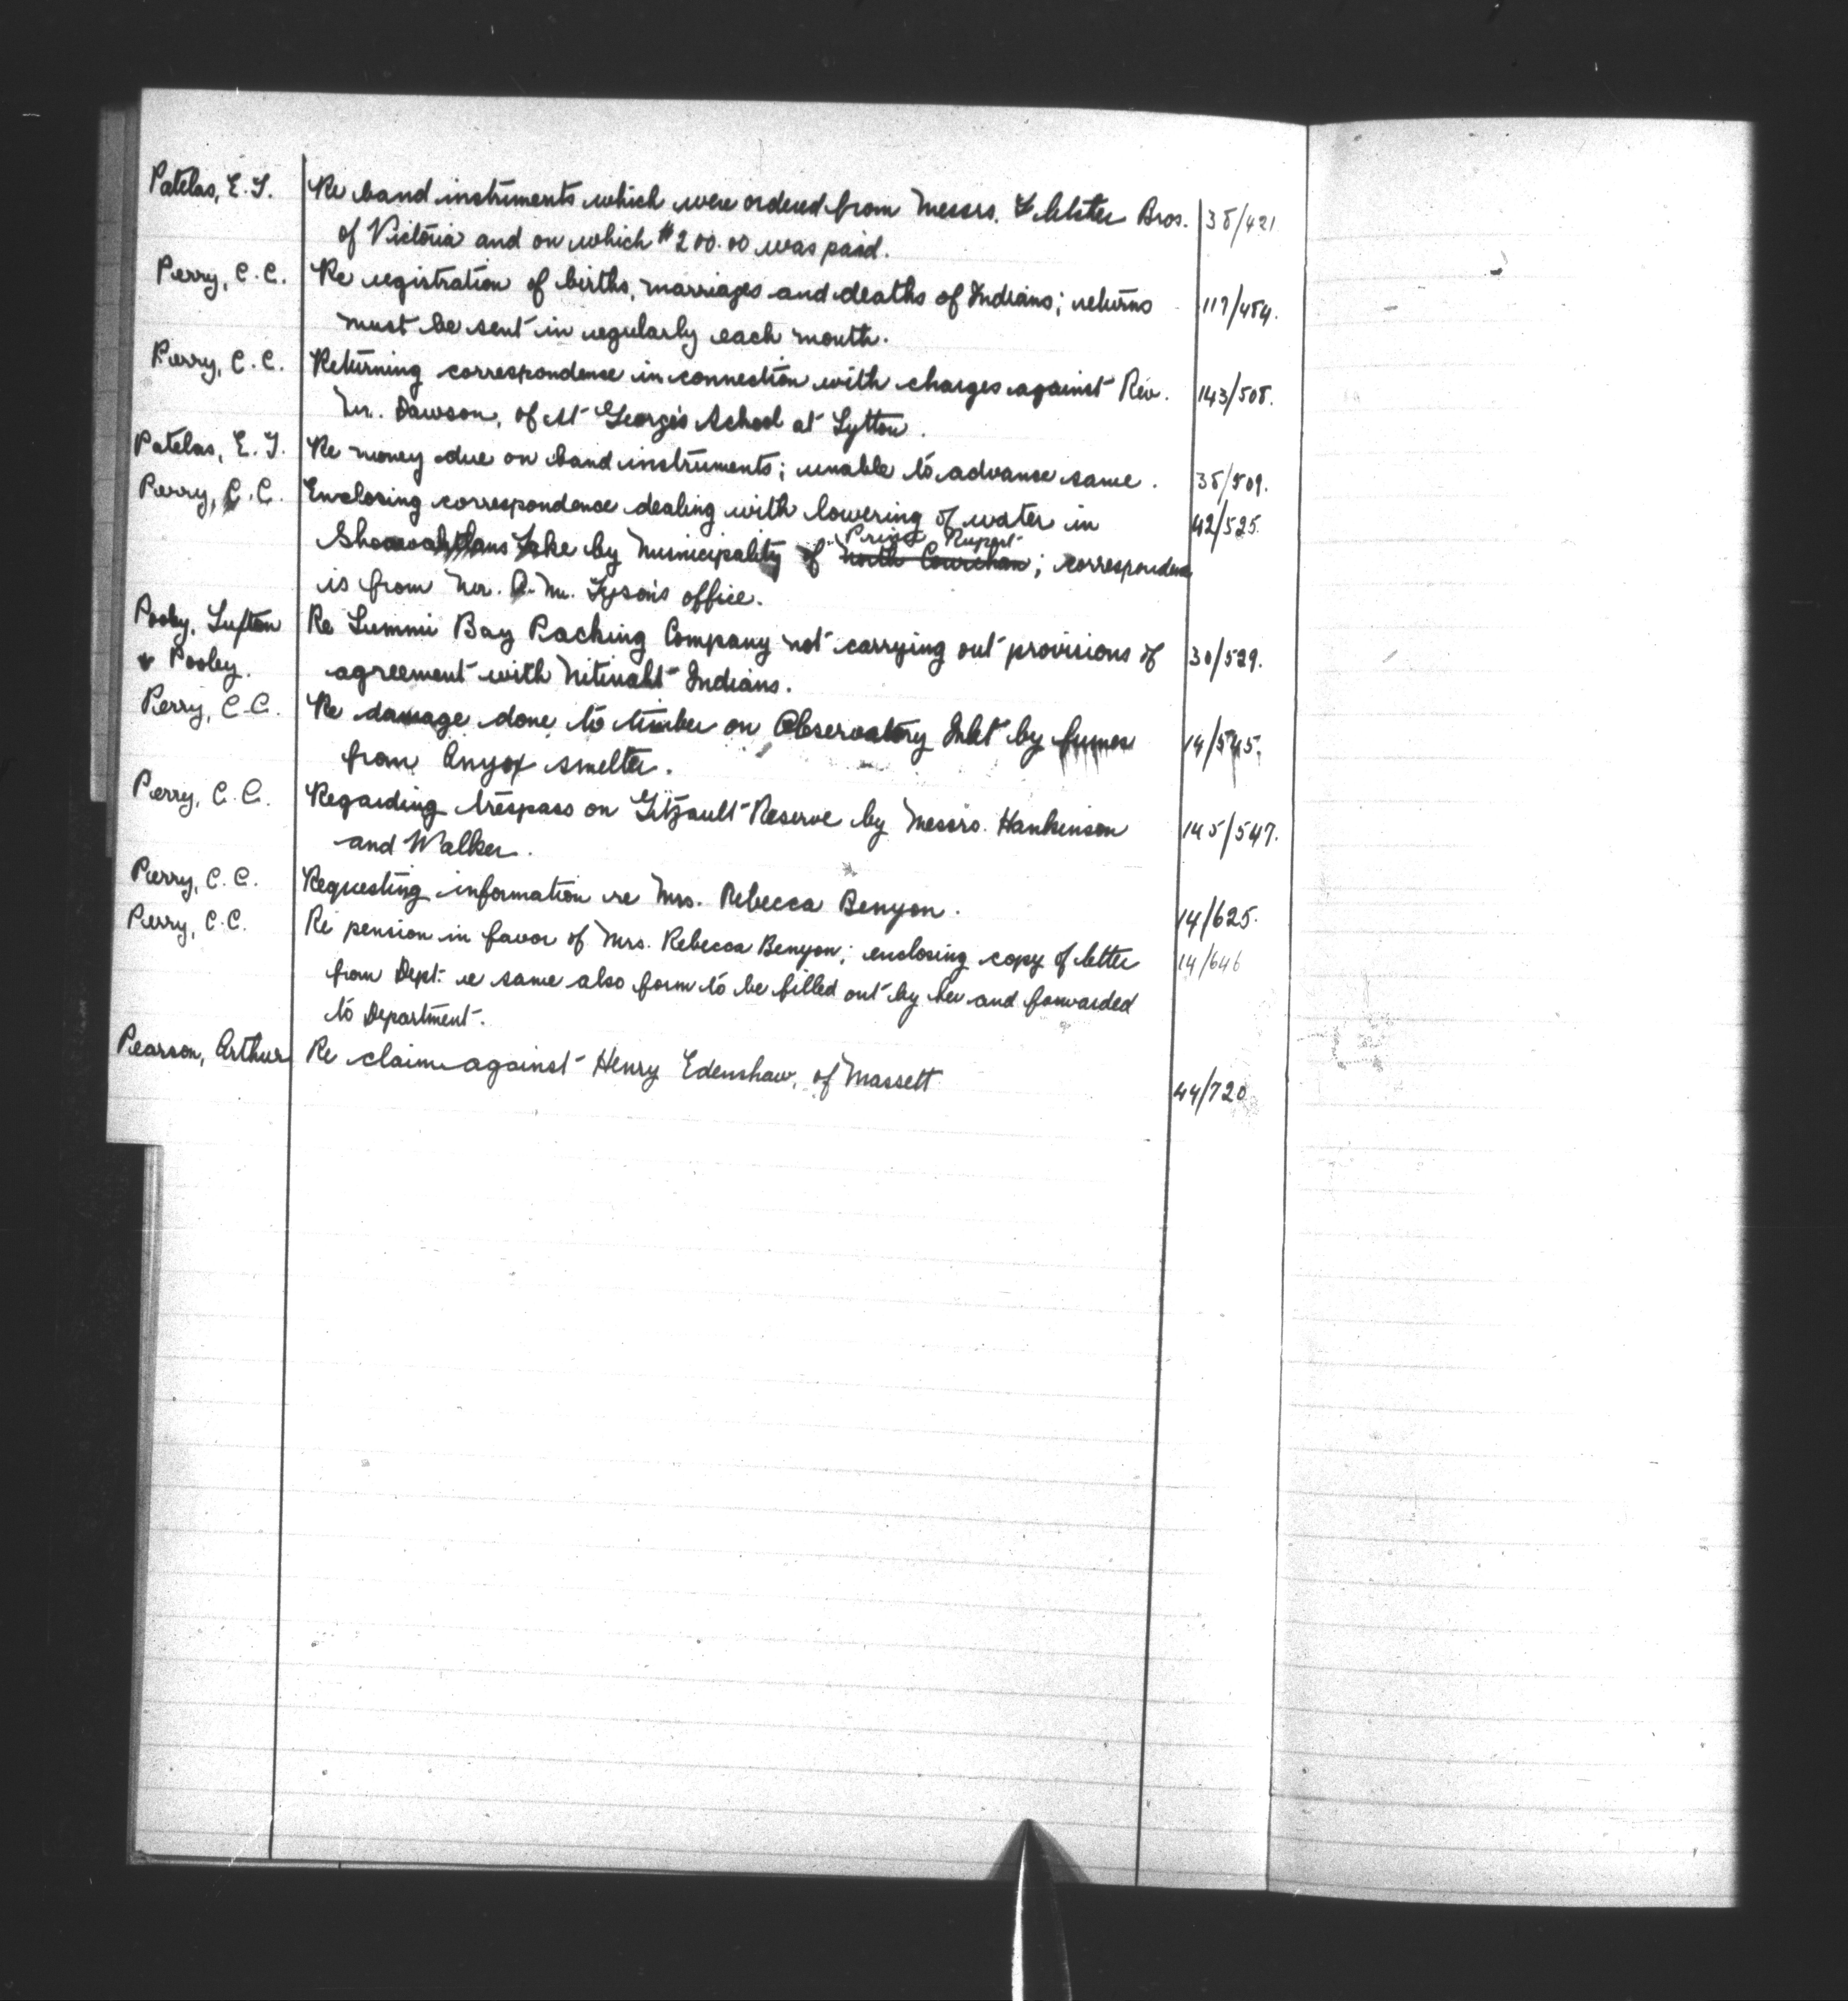 Patelas, E. T. Re band instruments which were ordered from Messrs. Fletcher Bros. 38/421
of Victoria and on which $200.00 was paid.
Perry, C. C. Re registration of births, marriages and deaths of Indians; returns 117/484.
must be sent in regularly each month.
Perry, C. C. Returning correspondence in connection with charges against Rev. 143/508.
Mr. Dawson, of St George's School at Lytton.
Patelas, E. T. Re money due on band instruments; unable to advance same. 38/509.
Perry, C. C. Enclosing correspondence dealing with lowering of water in 42/525.
Prince Rupert
Lake by Municipality of North Cowichan; correspondence
is from Mr. A. M. Tyson's office.
Pooley, Luxton Re Lummi Bay Packing Company not carrying out provisions of 30/529.
& Pooley. agreement with Nitinaht Indians.
Perry, C. C. Re damage done to timber on Observatory Inlet by fumes 14/545.
from Anyox smelter.
Perry, C. C. Regarding trespass on Gitzault Reserve by Messrs. Hankinson 145/547.
and Walker.
Perry, C. C. Requesting information re Mrs. Rebecca Benyon. 14/625.
Perry, C. C. Re pension in favor of Mrs. Rebecca Benyon; enclosing copy of letter 14/646
from Dept. re same also form to be filled out by her and forwarded
to Department.
Pearson, Arthur Re claim against Henry Edenshaw, of Massett 44/720